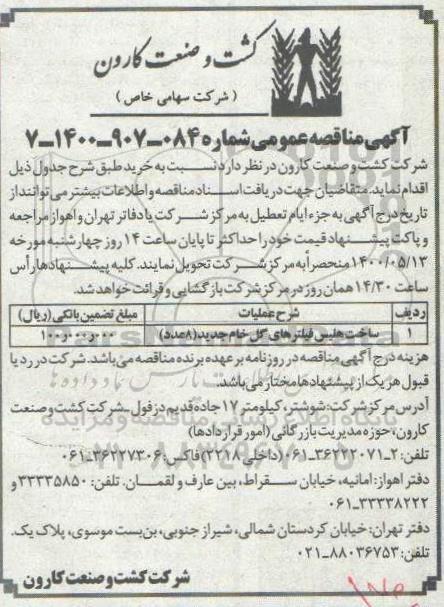 کشت و صنعت کارون
(شرکت سهامی خاص)
آگهی مناقصه عمومی شماره ۰۸۴-۹۰۷-۱۴۰۰-۷
شرکت کشت و صنعت کارون در نظر دارد نسبت به خرید طبق شرح جدول ذیل
اقدام نماید. متقاضیان جهت دریافت اسناد مناقصه و اطلاعات بیشتر می توانند از
تاریخ درج آگهی به جزء ایام تعطیل به مرکز شرکت یا دفاتر تهران و اهواز مراجعه
و پاکت پیشنهاد قیمت خود را حداکثر تا پایان ساعت ۱۴ روز چهارشنبه مورخه
۱۴۰۰/۰۵/۱۳ منحصراً به مرکز شرکت تحویل نمایند. کلیه پیشنهادها رأس
ساعت ۱۴/۳۰ همان روز در مرکز شرکت بازگشایی و قرائت خواهد شد.
ردیف شرح عملیات مبلغ تضمین بانکی (ریال)
۱ ساخت هلیس فیلترهای گل خام جدید (۸عدد) ۱۰۰٫۰۰۰٫۰۰۰
هزینه درج آگهی مناقصه در روزنامه بر عهده برنده مناقصه می باشد. شرکت در رد یا
قبول هر یک از پیشنهادها مختار می باشد.
آدرس مرکز شرکت: شوشتر، کیلومتر ۱۷ جاده قدیم دزفول ـ شرکت کشت و صنعت
کارون، حوزه مدیریت بازرگانی (امور قراردادها)
تلفن: ۲-۳۶۲۲۲۰۷۱-۰۶۱ (داخلی ۲۲۱۸) فاکس: ۳۶۲۲۷۳۰۶-۰۶۱
دفتر اهواز: امانیه، خیابان سقراط، بین عارف و لقمان. تلفن: ۳۳۳۳۵۸۵۰ و
۳۳۳۳۸۲۲۲-۰۶۱
دفتر تهران: خیابان کردستان شمالی، شیراز جنوبی، بن بست موسوی، پلاک یک.
تلفن: ۸۸۰۳۶۷۵۳-۰۲۱
شرکت کشت و صنعت کارون